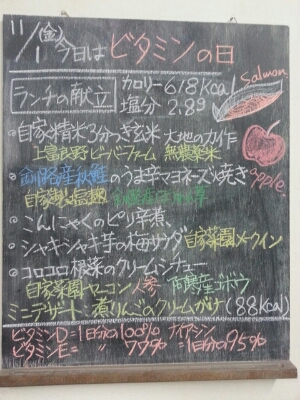 11/1(金)今日はビタミンの日
ランチの献立
カロリー618kcal
塩分 2.8g
Salmon
apple
自家精米3分つき玄米 大地のカイト
上富良野ビーバーファーム 無農薬米
釧路産秋鮭のうま辛マヨネーズ焼き
自家製塩麹
こんにゃくのピリ辛煮
シャキシャキ芋の梅サラダ 自家菜園メークイン
コロコロ根菜のクリームシチュー
自家菜園 人参 産ゴボウ
ミニデザート 煮りんごのクリームがけ(88kcal)
ビタミンD=1日分の100% ナイアシン
ビタミンE= 〃 77% =1日分の95%